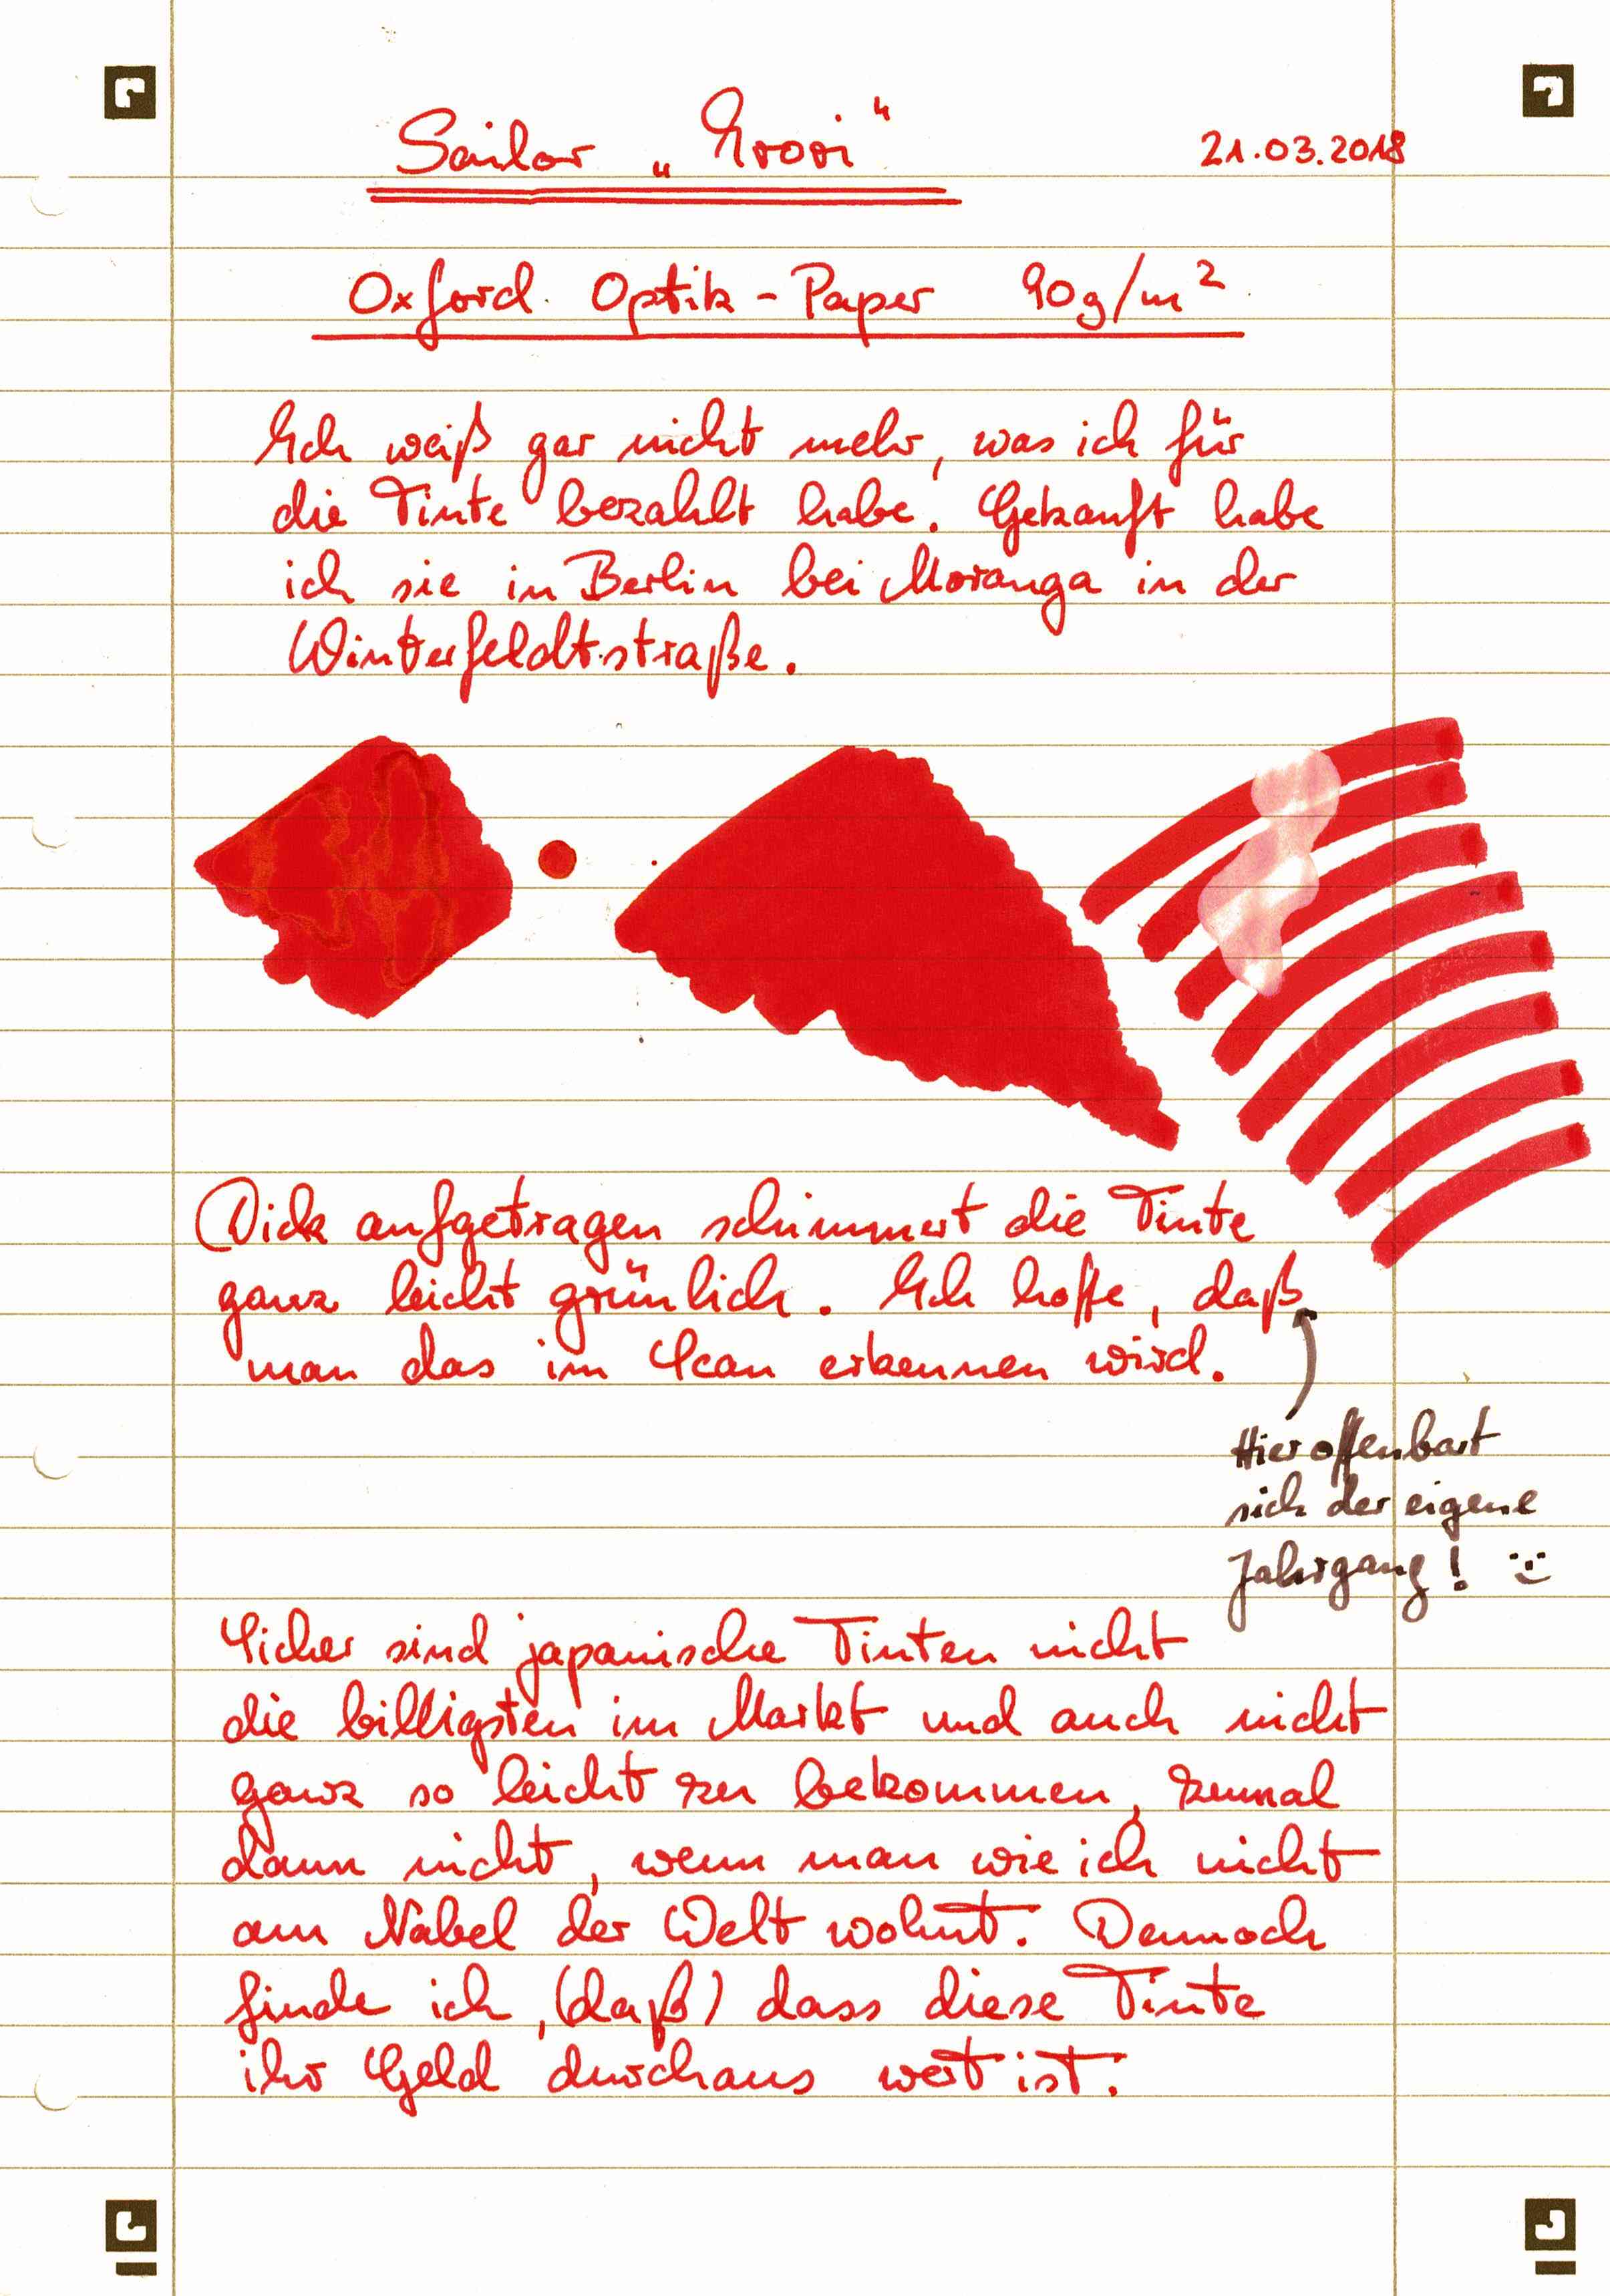 Sailor „Irori“
21.03.2018
Oxford Optik-Paper 90g/m²
Ich weiß gar nicht mehr, was ich für
die Tinte bezahlt habe. Gekauft habe
ich sie in Berlin bei Moranga in der
Winterfeldtstraße.
Dick aufgetragen schimmert die Tinte
ganz leicht grünlich. Ich hoffe, daß
man das im Scan erkennen wird.
Hier offenbart
sich der eigene
Jahrgang!
Sicher sind japanische Tinten nicht
die billigsten im Markt und auch nicht
ganz so leicht zu bekommen, zumal
dann nicht, wenn man wie ich nicht
am Nabel der Welt wohnt. Dennoch
finde ich, (daß) dass diese Tinte
ihr Geld durchaus wert ist.